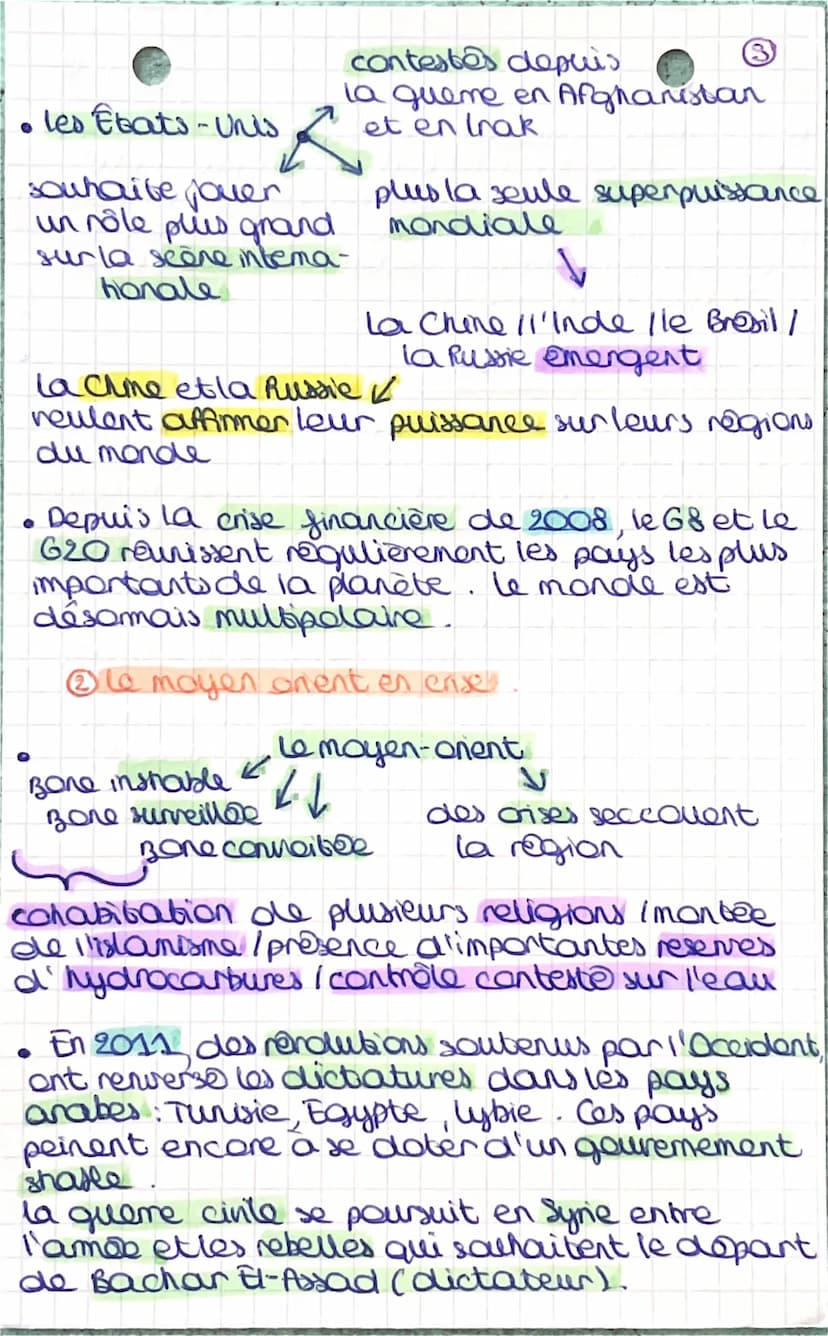 ③
contestés depuis
la guerre en Afghanistan
• les États-Unis et en Irak
souhaite jouer
un rôle plus grand
sur la scène interna-
tionale
plus la seule superpuissance
mondiale
La Chine / l'Inde / le Brésil /
la Russie émergent
La Chine et la Russie
veulent affirmer leur puissance sur leurs régions
du monde
• Depuis la crise financière de 2008, le G8 et le
G20 réunissent régulièrement les pays les plus
importants de la planète. Le monde est
désormais multipolaire.
② Le moyen orient en crise.
• Le moyen-orient
zone instable
zone surveillée
zone convoitée
des crises seccouent
la région
cohabitation de plusieurs religions / montée
de l'islamisme / présence d'importantes reserves
d'hydrocarbures / contrôle contesté sur l'eau
• En 2011, des révolutions soutenus par l'Occident,
ont renversé les dictatures dans les pays
arabes : Tunisie, Egypte, Lybie. Ces pays
peinent encore à se doter d'un gouvernement
stable.
La guerre civile se poursuit en Syrie entre
l'armée et les rebelles qui souhaitent le départ
de Bachar El-Assad (dictateur).